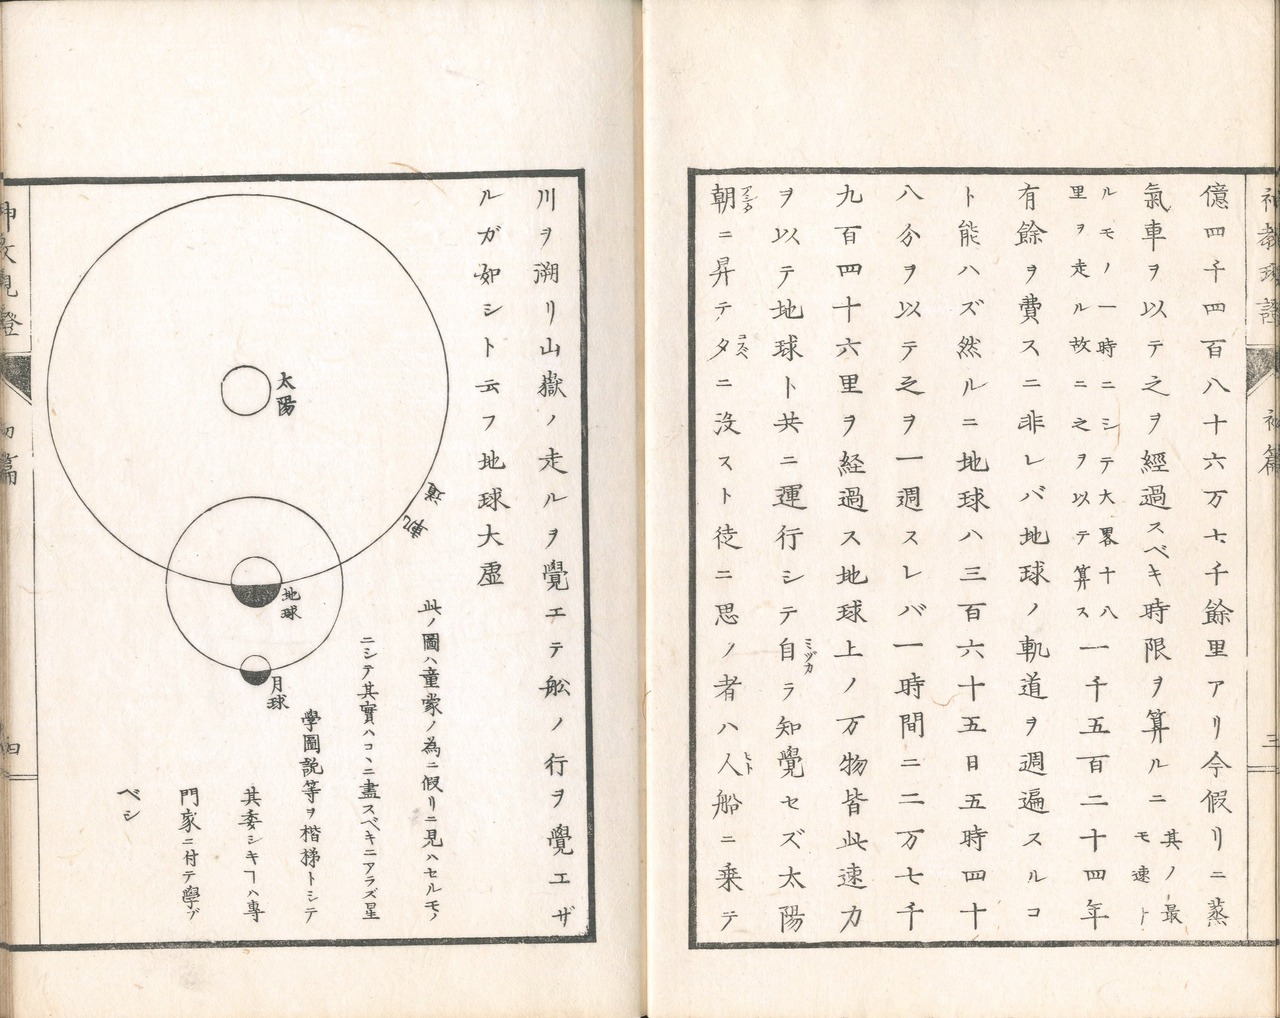 神教現證
初篇
三
億四千四百八十六万七千餘里アリ今假リニ蒸
氣車ヲ以テ之ヲ經過スベキ時限ヲ算ルニ其ノ最モ速ト
ルモノ一時ニシテ大畧十八
里ヲ走ル故ニ之ヲ以テ算ス
一千五百二十四年
有餘ヲ費スニ非レバ地球ノ軌道ヲ週遍スルコ
ト能ハズ然ルニ地球ハ三百六十五日五時四十
八分ヲ以テ之ヲ一週スレバ一時間ニ二万七千
九百四十六里ヲ経過ス地球上ノ万物皆此速力
ヲ以テ地球ト共ニ運行シテ自ミヅカラ知覺セズ太陽
朝アシタニ昇テ夕ニ没スト徒ニ思ノ者ハ人ヒト船ニ乗テ
川ヲ溯リ山嶽ノ走ルヲ覺エテ舩ノ行ヲ覺エザ
ルガ如シト云フ地球大虚
太陽
軌道
地球
月球
此ノ圖ハ童蒙ノ為ニ假リニ見ハセルモノ
ニシテ其實ハコヽニ盡スベキニアラズ星
學圖説等ヲ楷梯トシテ
其委シキヿハ專
門家ニ付テ學ブ
ベシ
神教現證
初篇
四